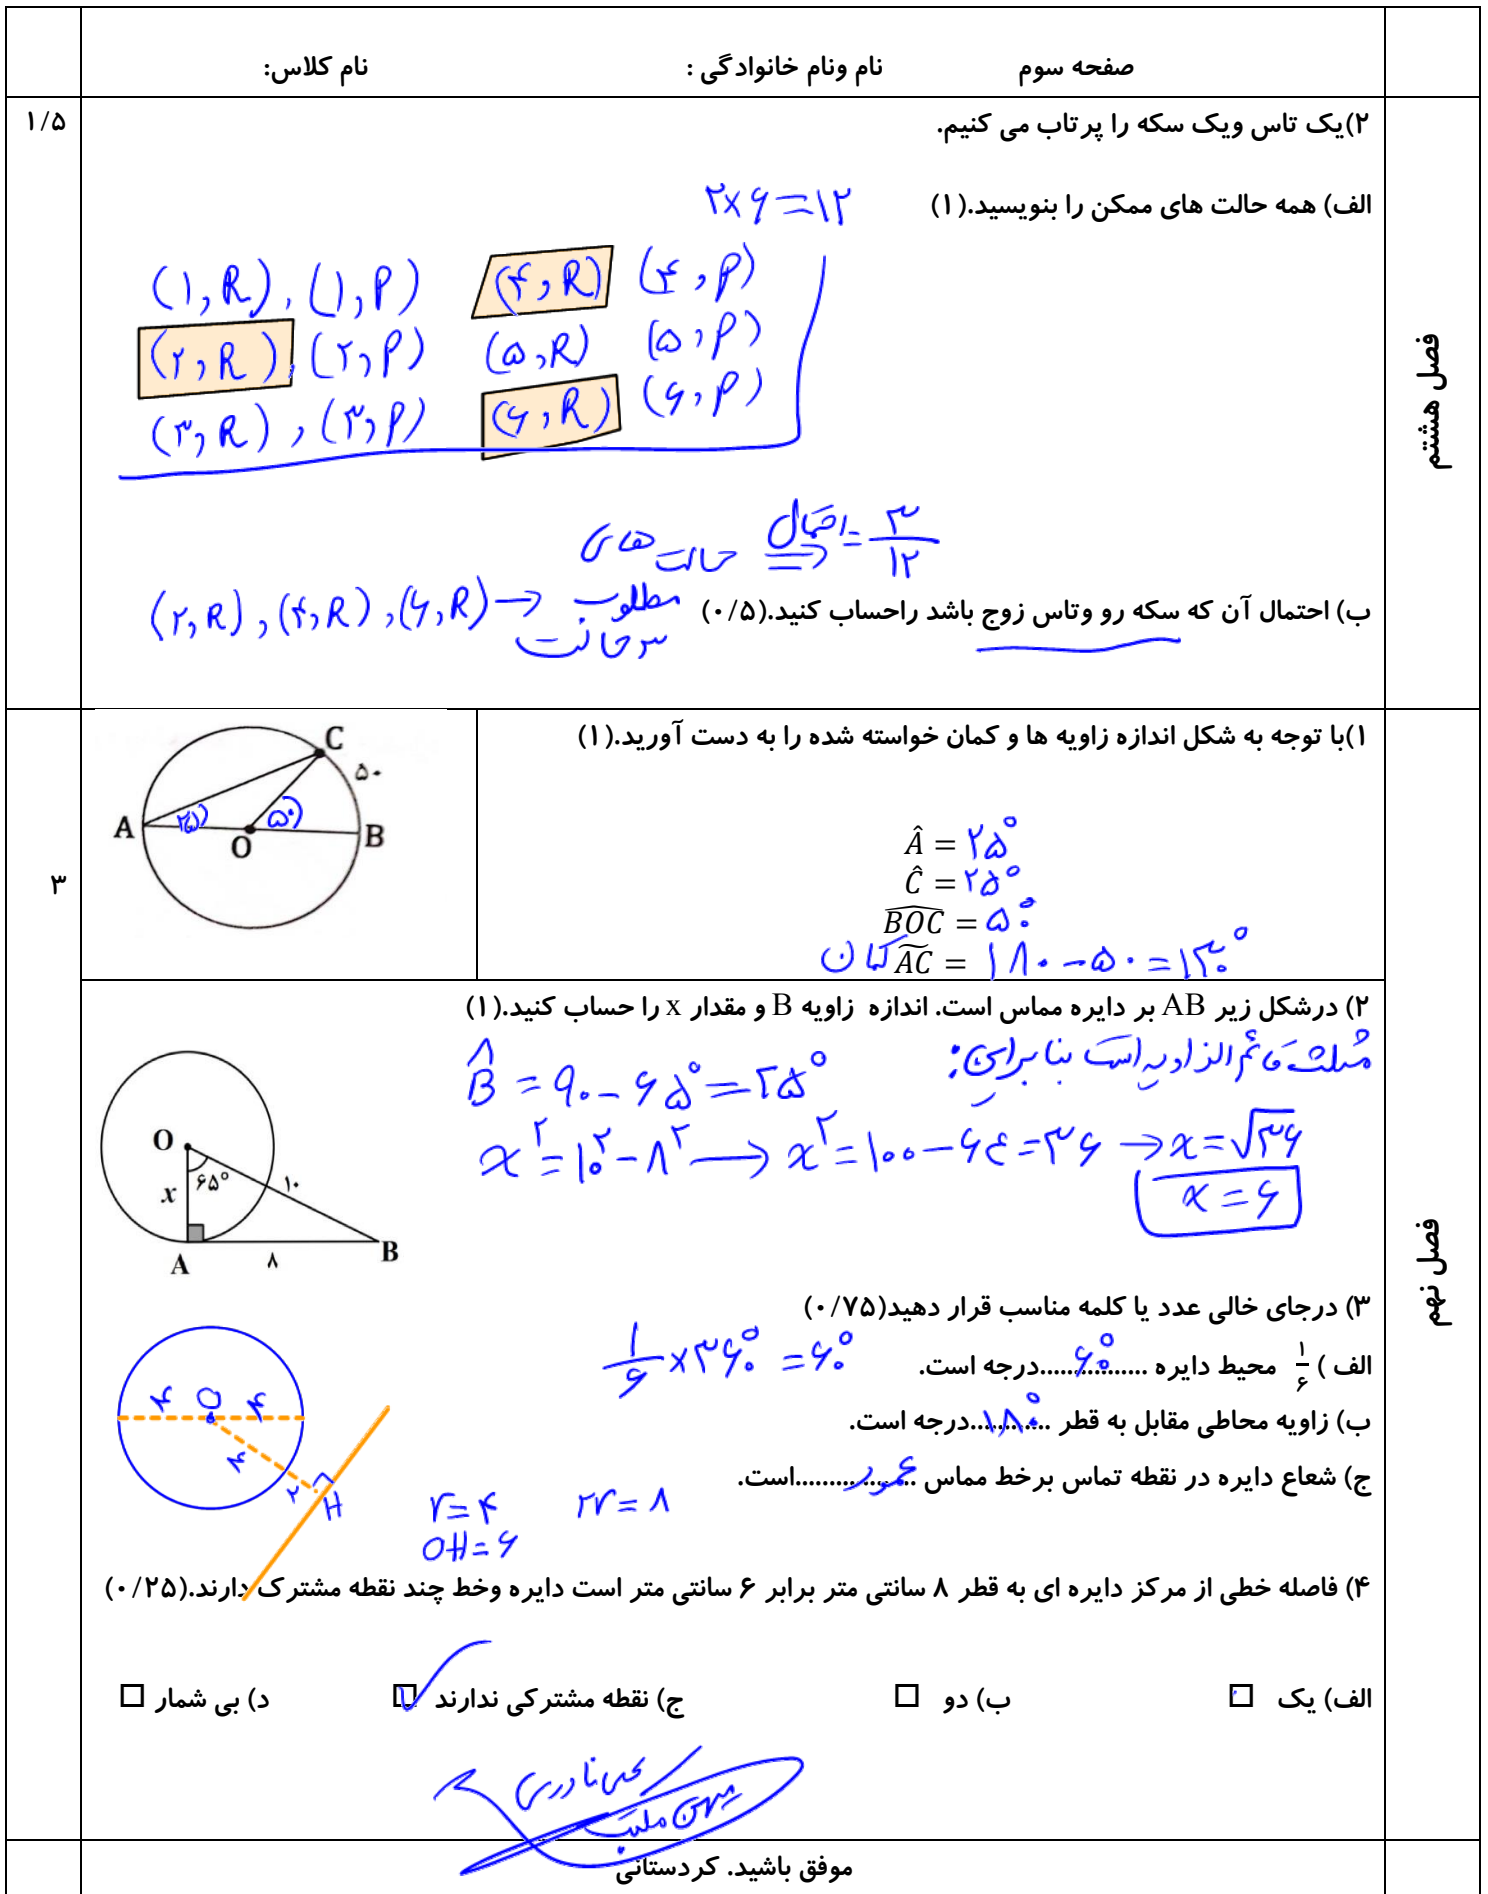 صفحه سوم نام ونام خانوادگی : نام کلاس:
فصل هشتم
۱/۵
۲)یک تاس ویک سکه را پرتاب می کنیم.
الف) همه حالت های ممکن را بنویسید.(۱) ۲×۶=۱۲
(۱, R), (۱, P) (۴, R) (۴, P)
(۲, R), (۲, P) (۵, R) (۵, P)
(۳, R), (۳, P) (۶, R) (۶, P)
حالت های ⇒ احتمال = ۳/۱۲
ب) احتمال آن که سکه رو وتاس زوج باشد راحساب کنید.(۰/۵) مطلوب ← (۲, R), (۴, R), (۶, R)
۳ حالت
فصل نهم
۳
۱)با توجه به شکل اندازه زاویه ها و کمان خواسته شده را به دست آورید.(۱)
C
۵۰
A ۲۵ O ۵۰ B
Â = ۲۵°
Ĉ = ۲۵°
BOC = ۵۰°
کمان AC = ۱۸۰-۵۰=۱۳۰°
۲) درشکل زیر AB بر دایره مماس است. اندازه زاویه B و مقدار x را حساب کنید.(۱)
مثلث قائم الزاویه است بنابراین:
B̂ = ۹۰-۶۵°=۲۵°
x²=۱۰²-۸² → x²=۱۰۰-۶۴=۳۶ → x=√۳۶
x=۶
O
۶۵° ۱۰
x
A ۸ B
۳) درجای خالی عدد یا کلمه مناسب قرار دهید(۰/۷۵)
الف ) ۱/۶ محیط دایره ....۶۰°....درجه است. ۱/۶×۳۶۰°=۶۰°
ب) زاویه محاطی مقابل به قطر ....۱۸۰°....درجه است.
ج) شعاع دایره در نقطه تماس برخط مماس ....عمود....است.
۴ O ۴
۴
۲ H
r=۴ ۲r=۸
OH=۶
۴) فاصله خطی از مرکز دایره ای به قطر ۸ سانتی متر برابر ۶ سانتی متر است دایره وخط چند نقطه مشترک دارند.(۰/۲۵)
الف) یک ☐ ب) دو ☐ ج) نقطه مشترکی ندارند ☑ د) بی شمار ☐
نادری
موفق باشید. کردستانی